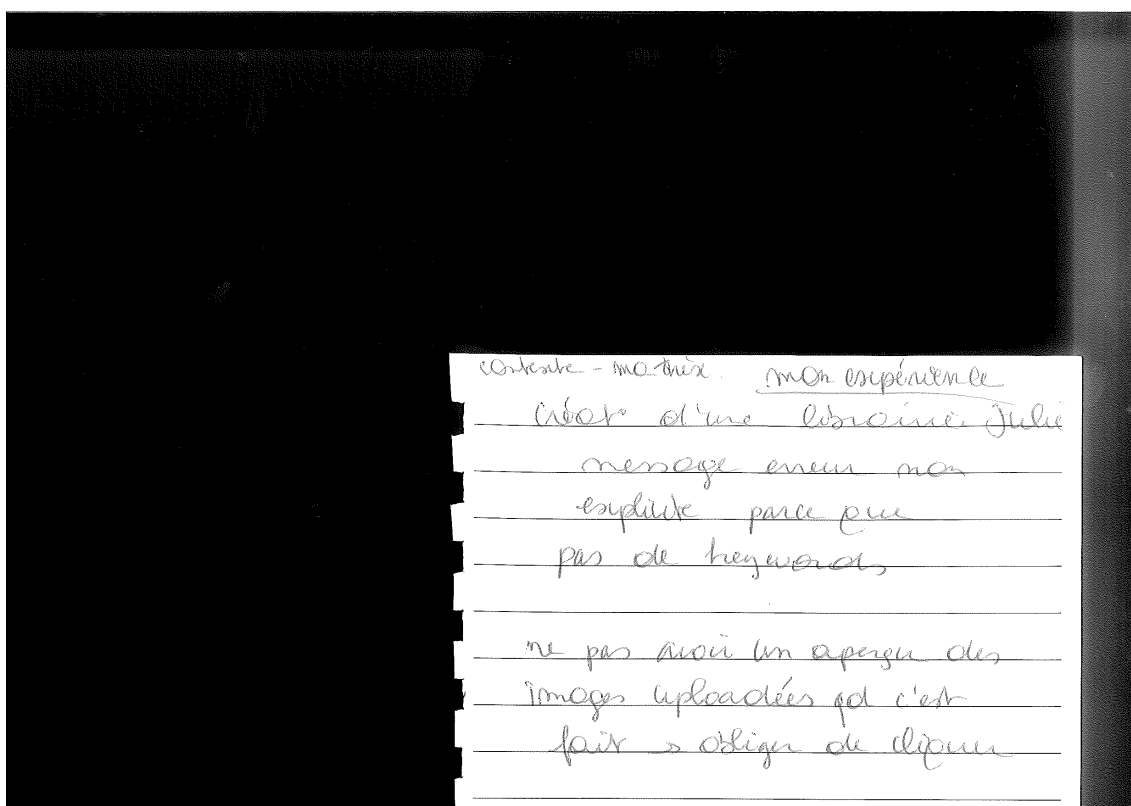 contente - matrix. mon expérience
créat° d'une librairie Julie
message erreur non
explicite parce que
pas de keywords
ne pas avoir un aperçu des
images uploadées qd c'est
fait → obliger de cliquer